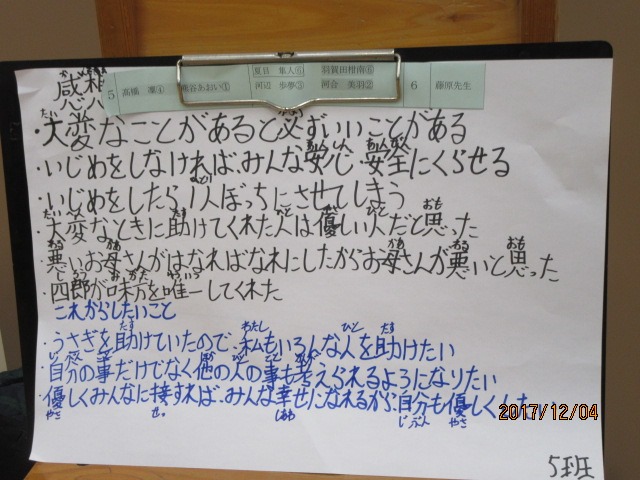 感想
5 高橋 凜④ 夏目 隼人⑥ 羽賀田柑南⑥ 6 藤原先生
谷あおい① 河辺 歩夢③ 河合 美羽②
・大変なことがあると必ずいいことがある
・いじめをしなければ、みんな安心・安全にくらせる
・いじめをしたら1人ぼっちにさせてしまう
・大変なときに助けてくれた人は優しい人だと思った
・悪いお母さんがはなればなれにしたからお母さんが悪いと思った
・四郎が味方を唯一してくれた
これからしたいこと
・うさぎを助けていたので、私もいろんな人を助けたい
・自分の事だけじなく他の人の事も考えられるようになりたい
・優しくみんなに接すれば、みんな幸せになれるから自分も優しくした
2017/12/04
5班